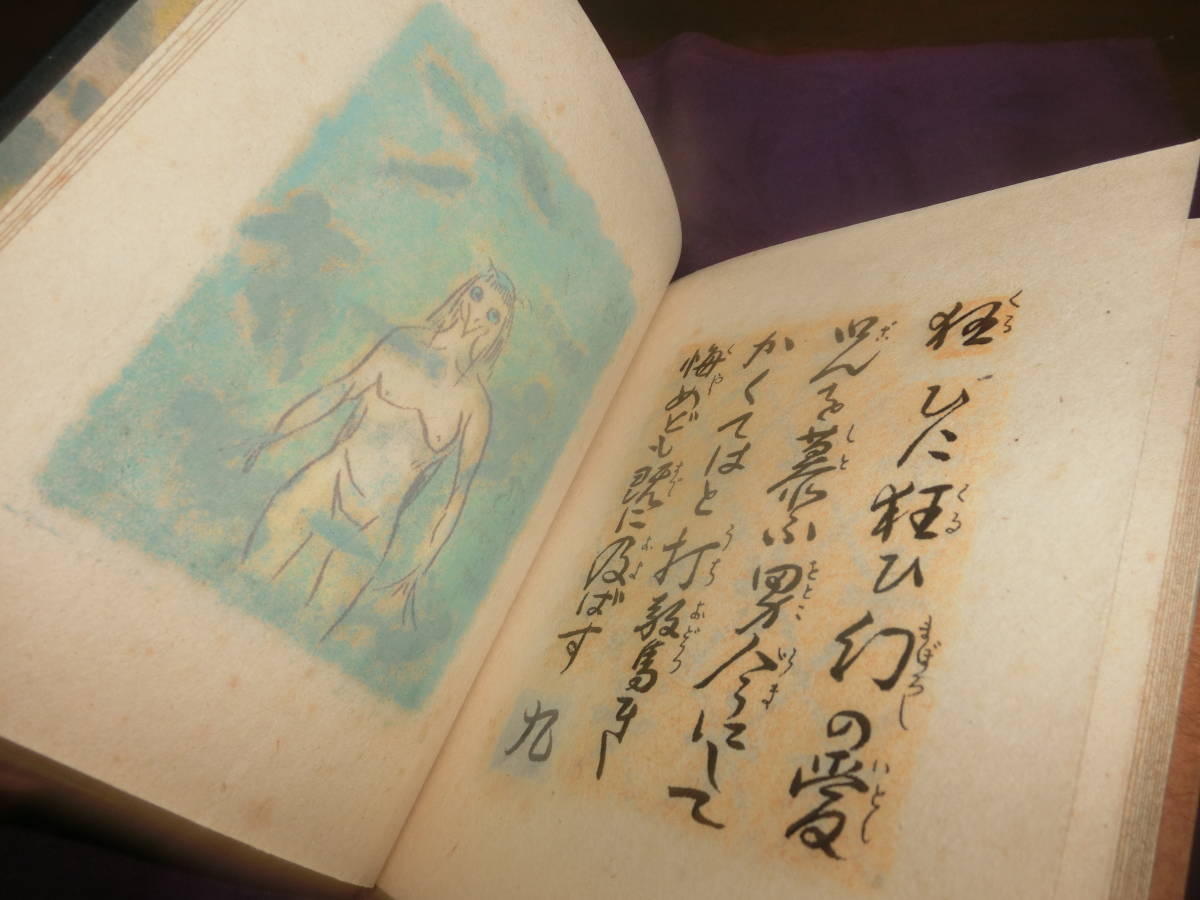 狂びに狂ひ幻の愛
んを慕ふ男今にして
かくてはと打驚きし
悔めども既に及ばす
九